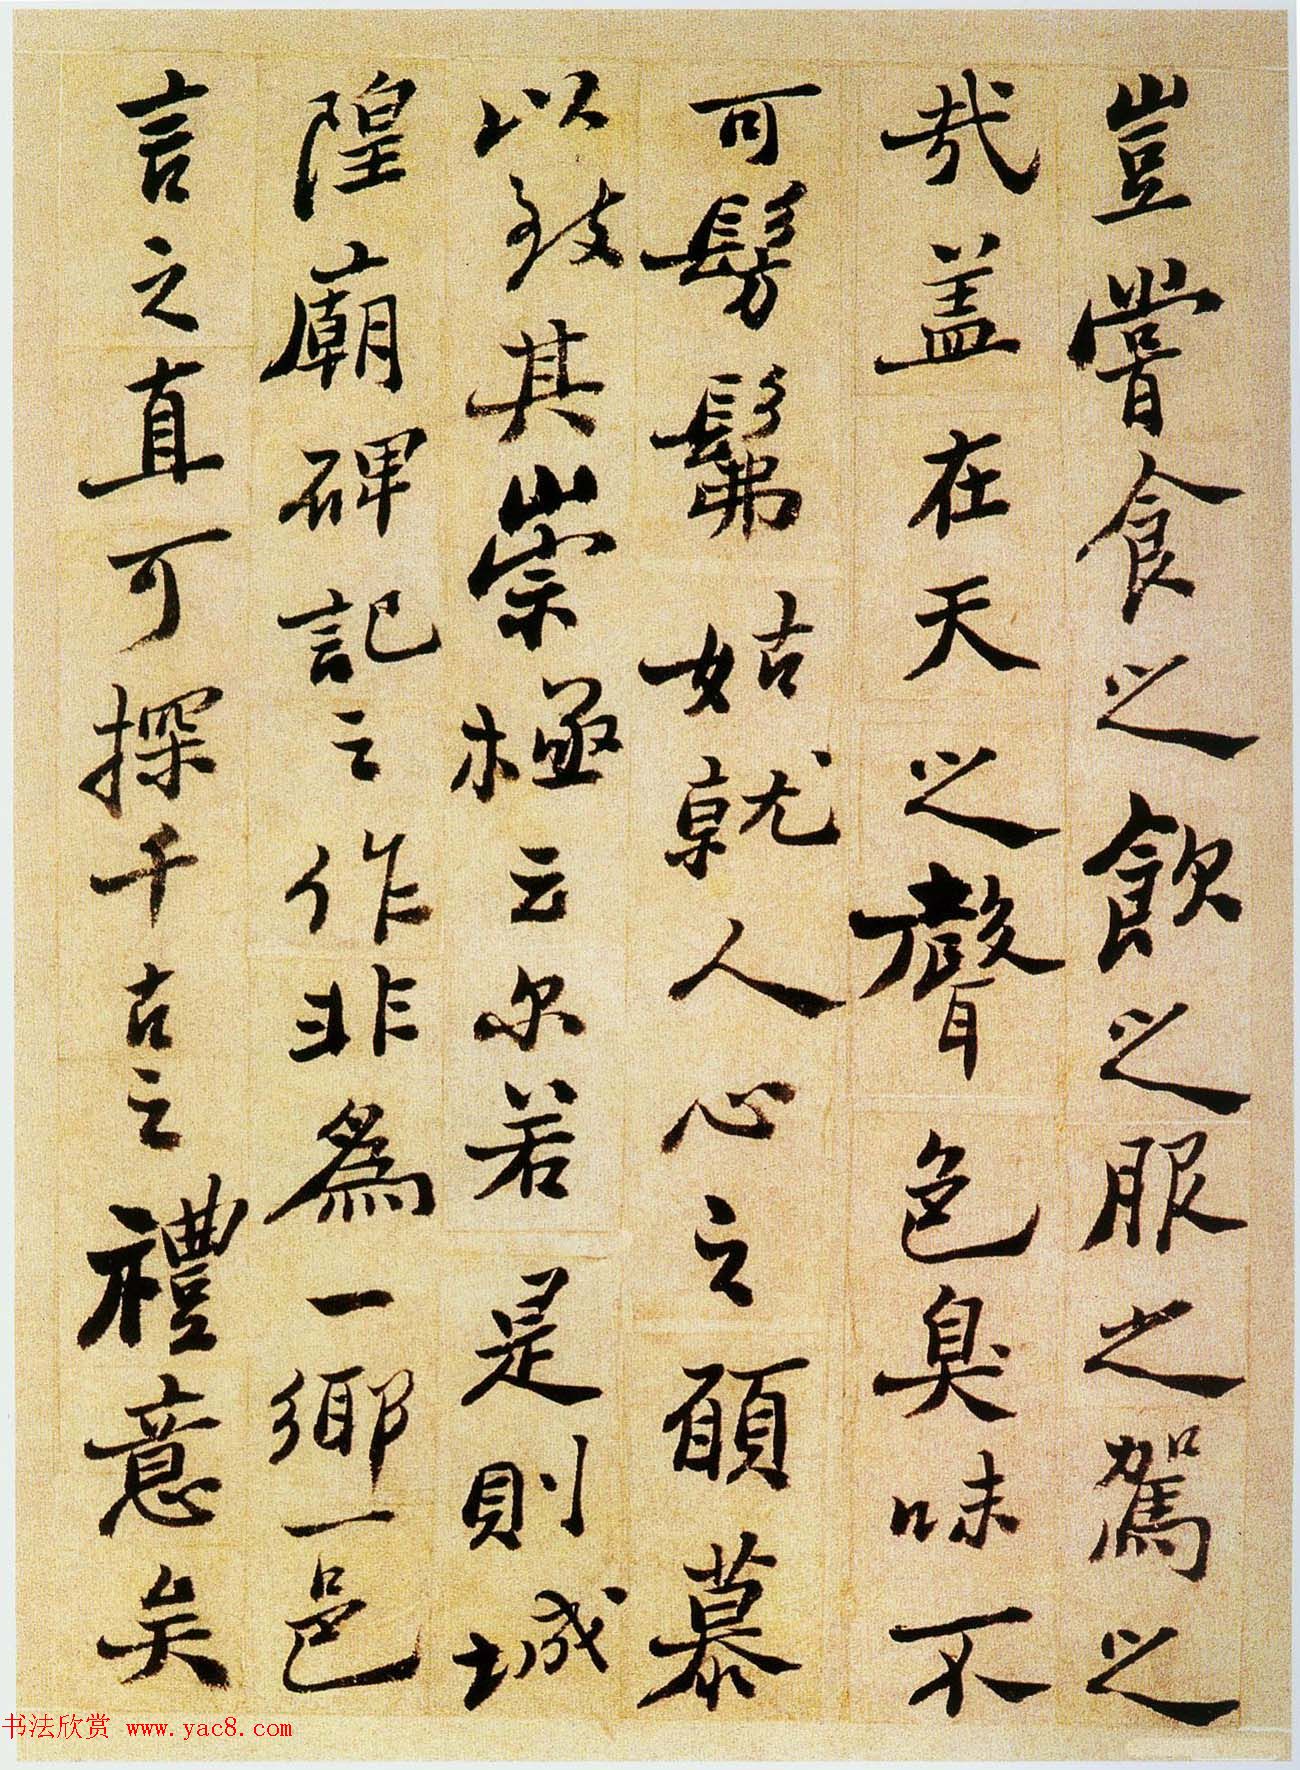 豈嘗食之飲之服之駕之
哉盖在天之聲色臭味不
可髣髴姑就人心之願慕
以致其崇極云尔若是則城
隍廟碑記之作非為一鄉一邑
言之直可探千古之禮意矣
书法欣赏 www.yac8.com